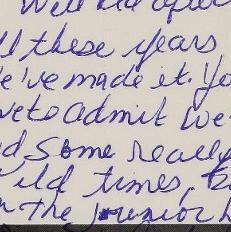 Well
ll these years
We've made it. Yo
ve to admit we
d some really
ild times,
n the junior h